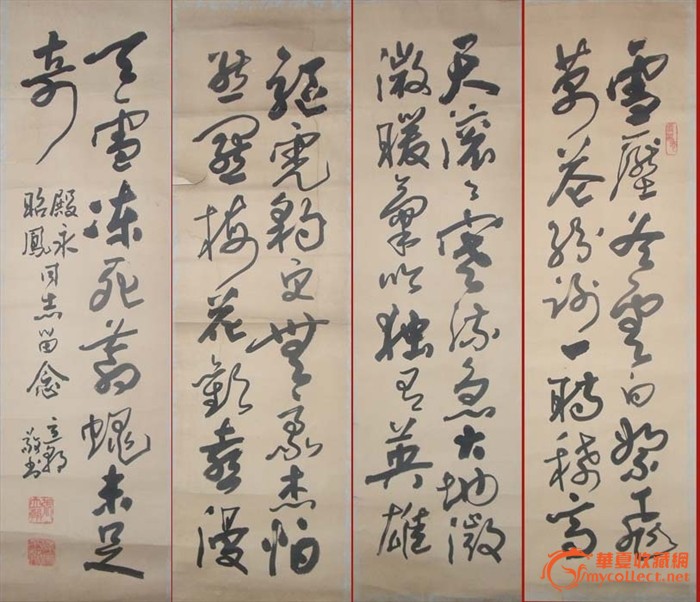 雪壓冬雲白絮飛
萬花紛謝一時稀高
天滚々寒流急大地微
微暖氣吹独有英雄
驅虎豹更無豪杰怕
熊羆梅花歡喜漫
天雪冻死蒼蠅未足
奇
殿永
昭鳳同志留念
敬书
華夏收藏網
mycollect.net